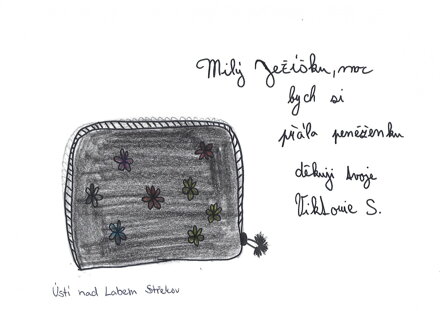 Milý Ježíšku, moc
bych si
přála peněženku
děkuji tvoje
Viktorie S.
Ústí nad Labem Střekov